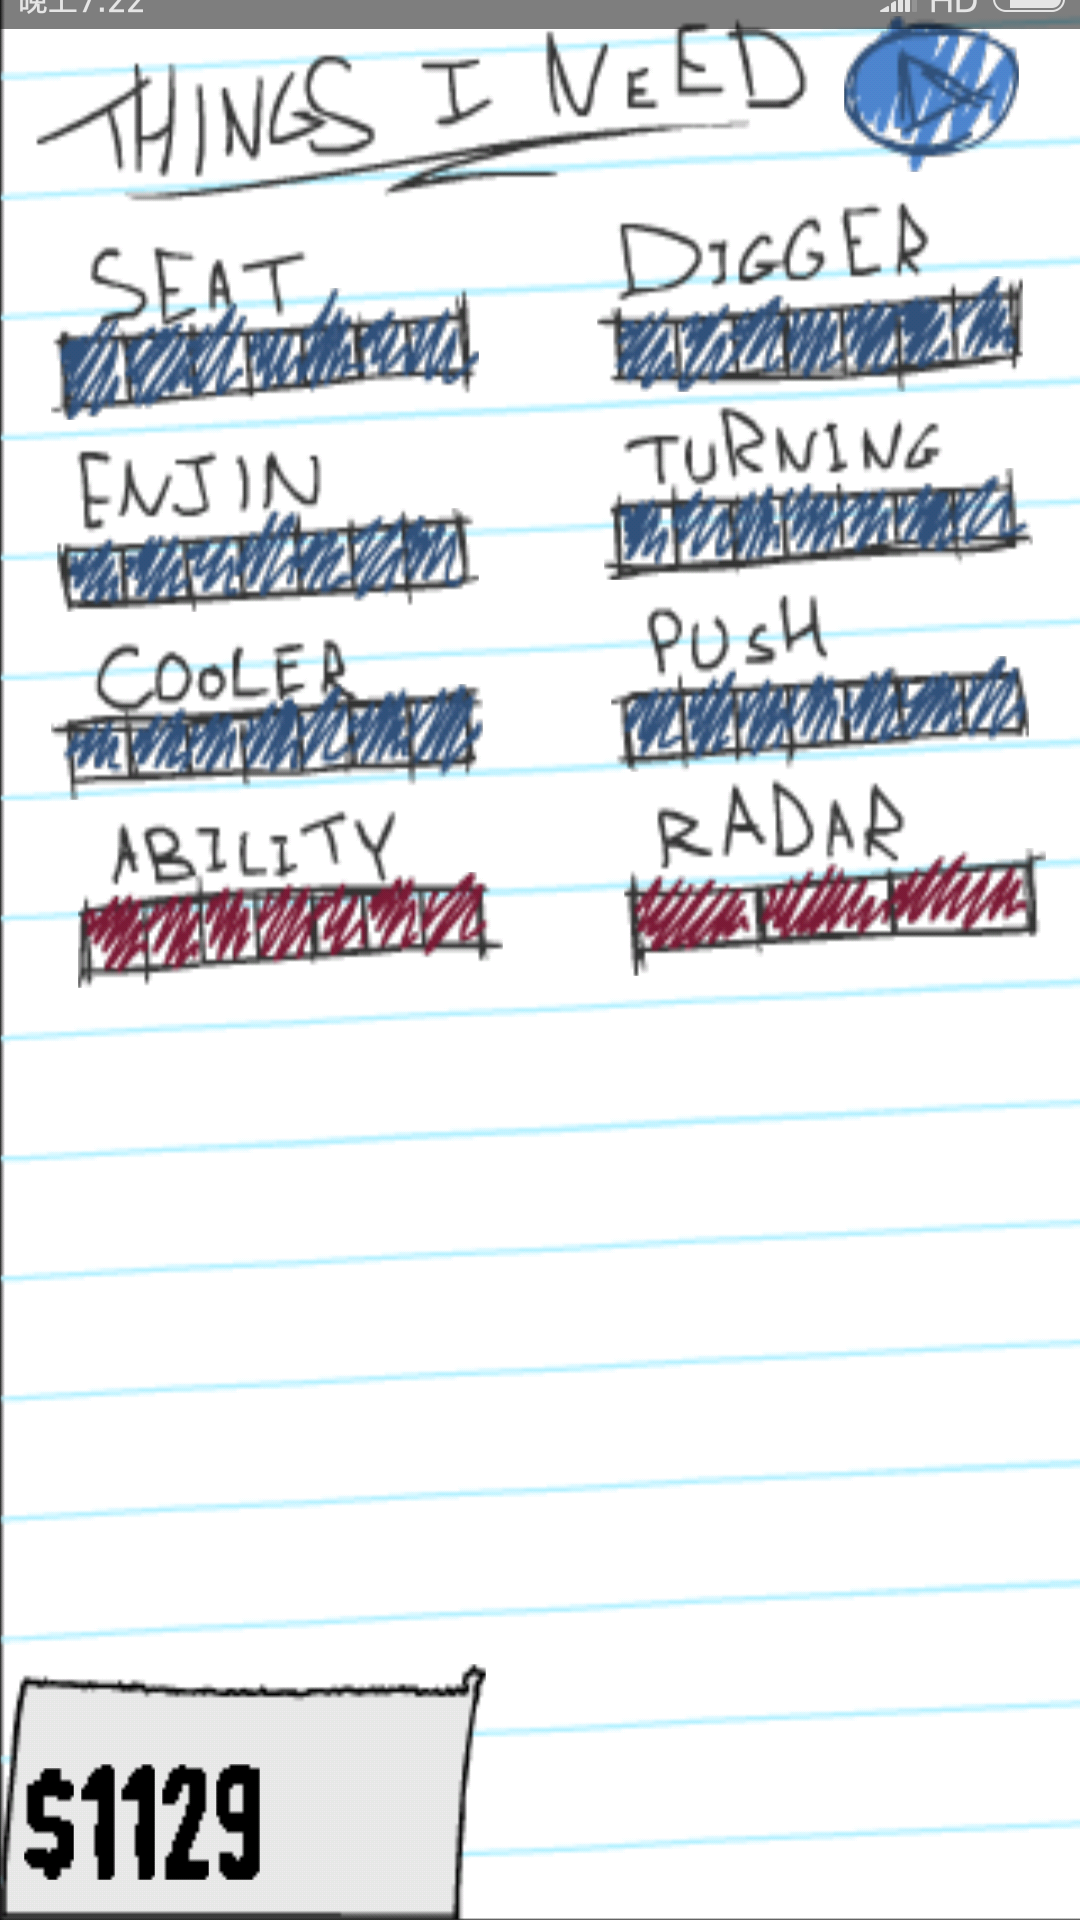 晚上7:22 HD
THINGS I NEED
SEAT DIGGER
ENJIN TURNING
COOLER PUSH
ABILITY RADAR
$1129